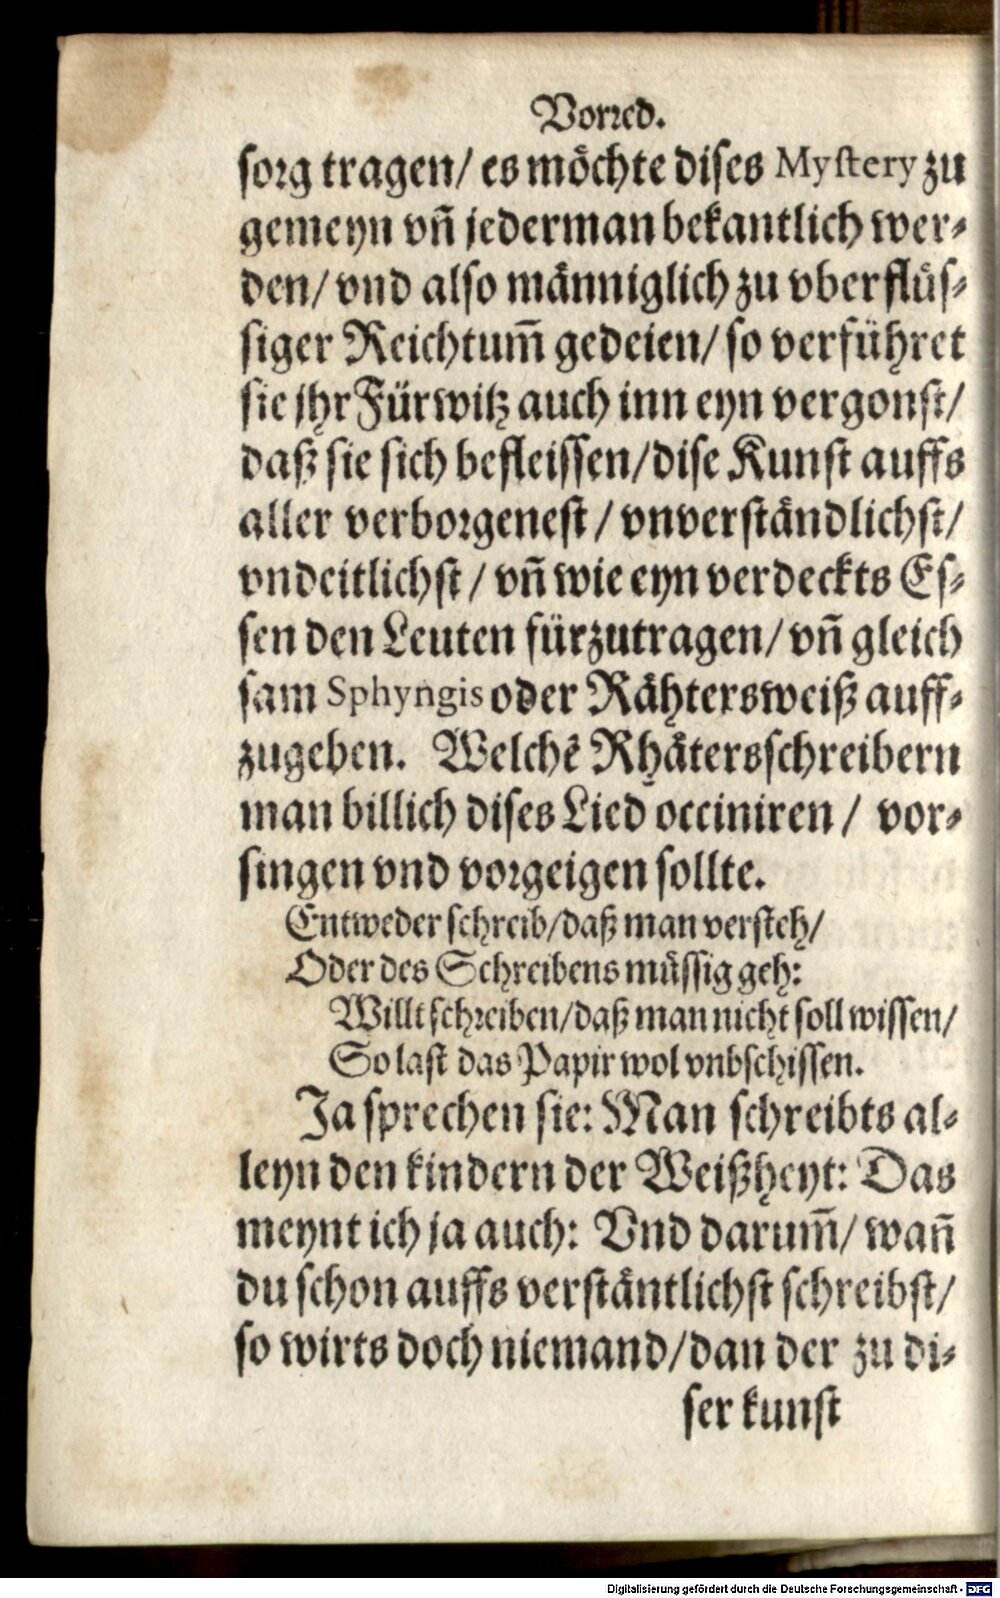 Vorred.
sorg tragen/ es möchte dises Mystery zu
gemeyn vñ jederman bekantlich wer⸗
den/ vnd also männiglich zu vberflüs⸗
siger Reichtum̃ gedeien/ so verführet
sie jhr Fürwitz auch inn eyn vergonst/
daß sie sich befleissen/ dise Kunst auffs
aller verborgenest/ vnverständlichst/
vndeitlichst/ vñ wie eyn verdeckts Es⸗
sen den Leuten fürzutragen/ vñ gleich
sam Sphyngis oder Rähtersweiß auff⸗
zugeben. Welchẽ Rhätersschreibern
man billich dises Lied occiniren/ vor⸗
singen vnd vorgeigen sollte.
Entweder schreib/ daß man versteh/
Oder des Schreibens müssig geh:
Willt schreiben/ daß man nicht soll wissen/
So last das Papir wol vnbschissen.
Ja sprechen sie: Man schreibts al⸗
leyn den kindern der Weißheyt: Das
meynt ich ja auch: Vnd darum̃/ wañ
du schon auffs verständtlichst schreibst/
so wirts doch niemand/ dan der zu di⸗
ser kunst
Digitalisierung gefördert durch die Deutsche Forschungsgemeinschaft - DFG